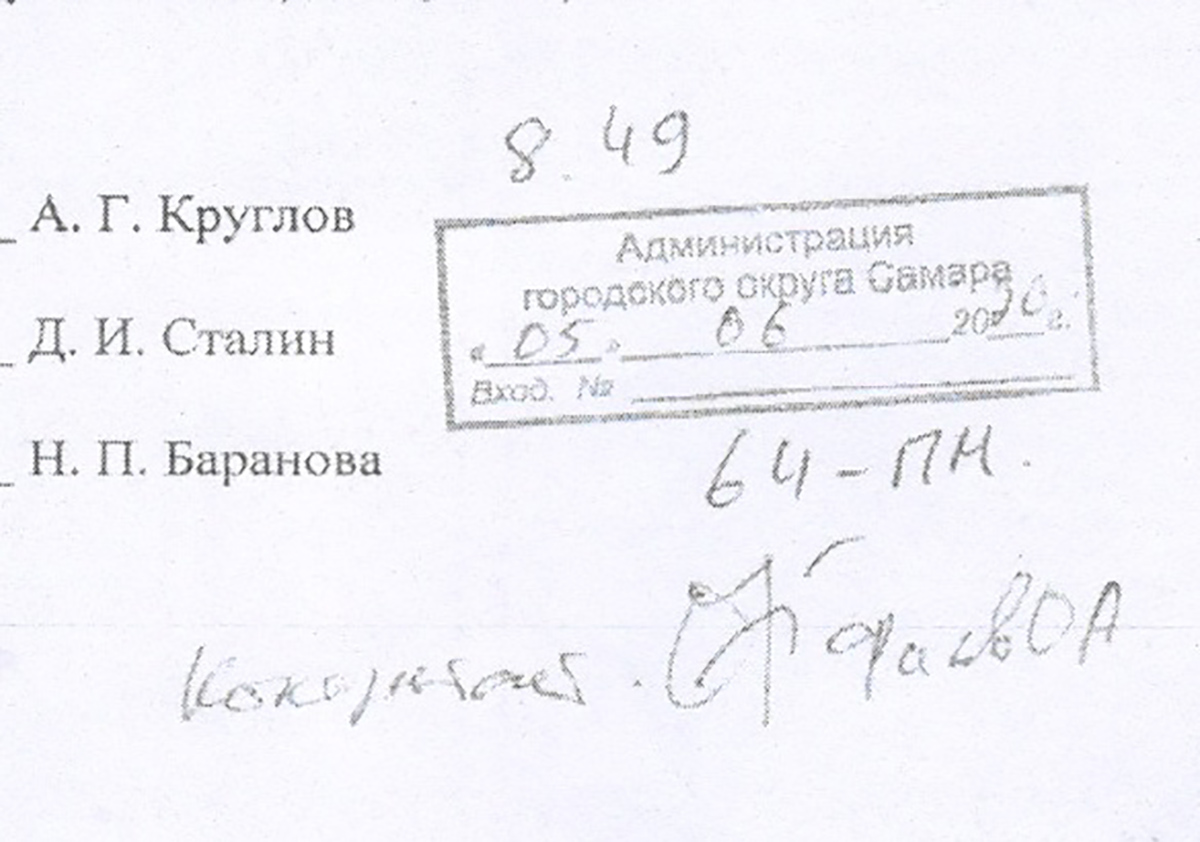 8.49
А. Г. Круглов
Администрация
городского округа Самара
« 05 » 06 2020 г.
Вход. №
Д. И. Сталин
Н. П. Баранова
64-ПН.